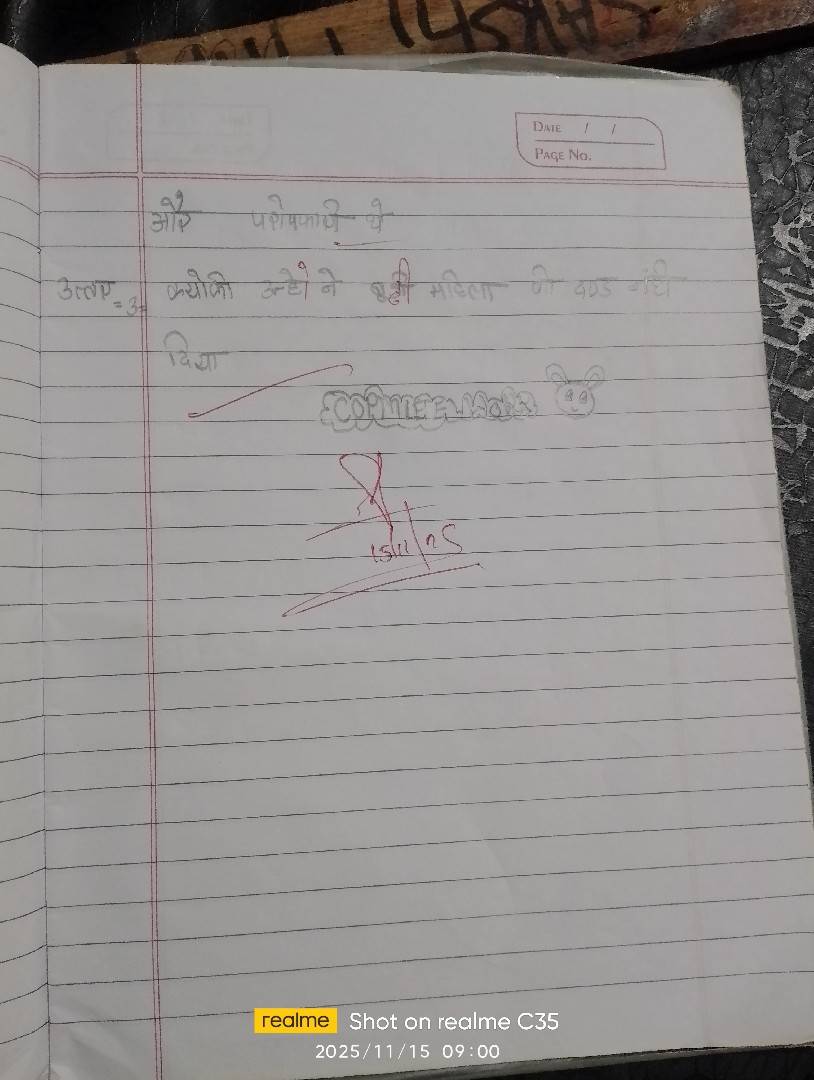 SAKSHI
DATE / /
PAGE NO.
और परोपकारी थे
उत्तर =3= क्योकी उन्होंने बूढ़ी महिला को दण्ड नंही
दिया
15/11/25
realme Shot on realme C35
2025/11/15 09:00